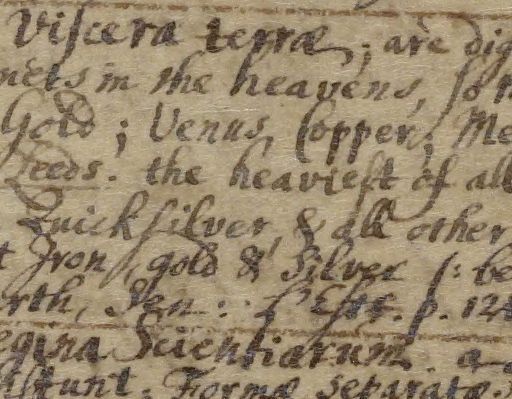 Viscera terræ; are dig
nets in the heavens, so
Gold; Venus, Copper; Me
Leeds. the heaviest of all
Quicksilver, & all other
Iron, gold & Silver be
rth, p. 12
egina Scientiarum a
istunt. Formæ separatæ.